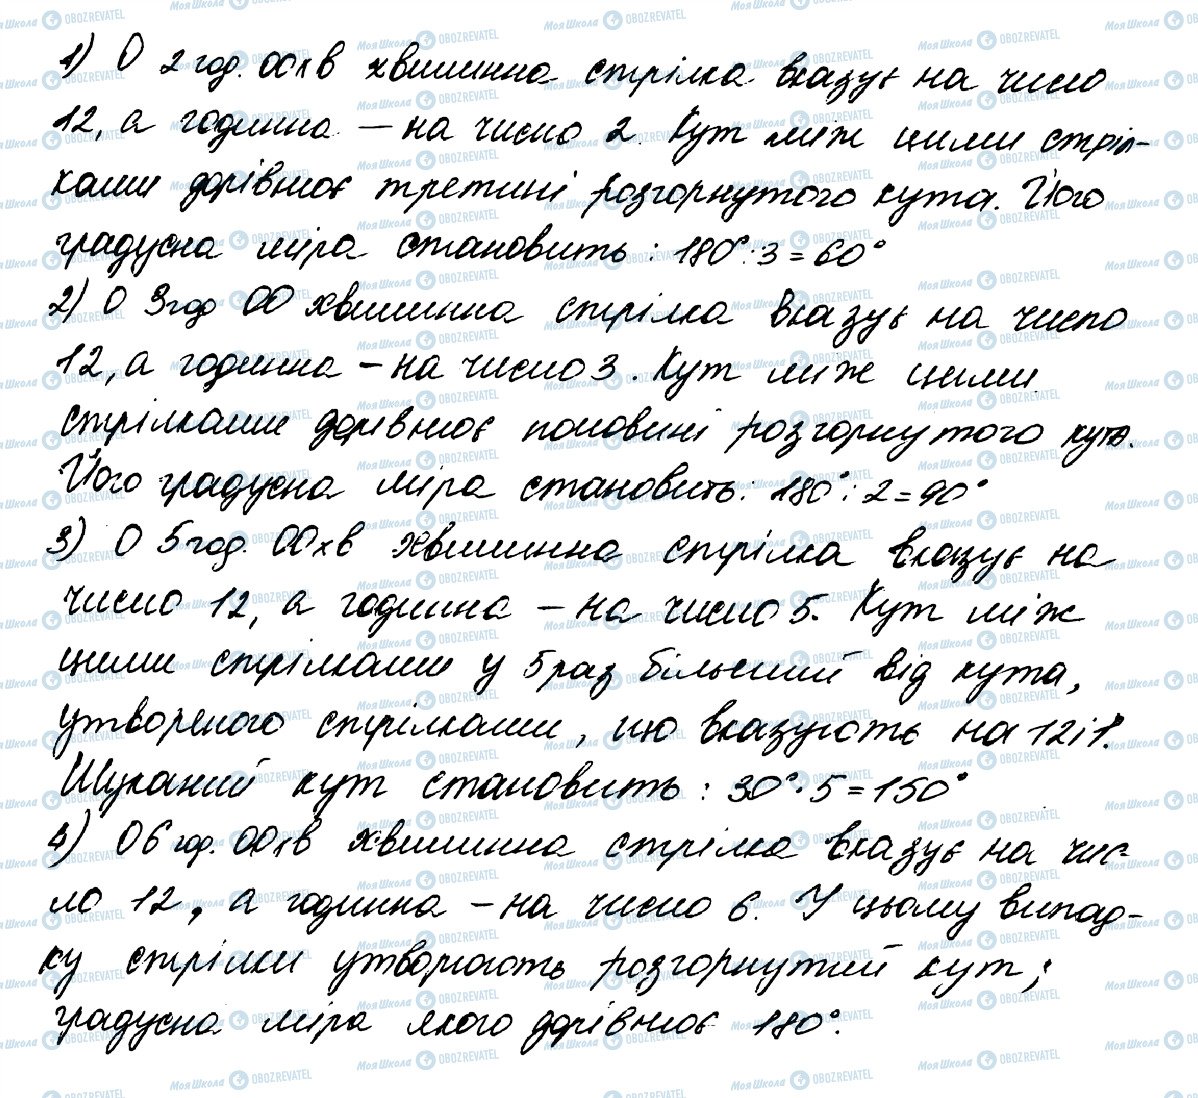 1) О 2 год. 00 хв хвилинна стрілка вказує на число
12, а годинна — на число 2. Кут між цими стріл-
ками дорівнює третині розгорнутого кута. Його
градусна міра становить: 180°:3=60°
2) О 3 год 00 хвилинна стрілка вказує на число
12, а годинна – на число 3. Кут між цими
стрілками дорівнює половині розгорнутого кута.
Його градусна міра становить: 180°:2=90°
3) О 5 год. 00 хв хвилинна стрілка вказує на
число 12, а годинна – на число 5. Кут між
цими стрілками у 5 раз більший від кута,
утвореного стрілками, що вказують на 12 і 1.
Шуканий кут становить: 30°·5=150°
4) О 6 год. 00 хв хвилинна стрілка вказує на чис-
ло 12, а годинна – на число 6. У цьому випад-
ку стрілки утворюють розгорнутий кут,
градусна міра якого дорівнює 180°.